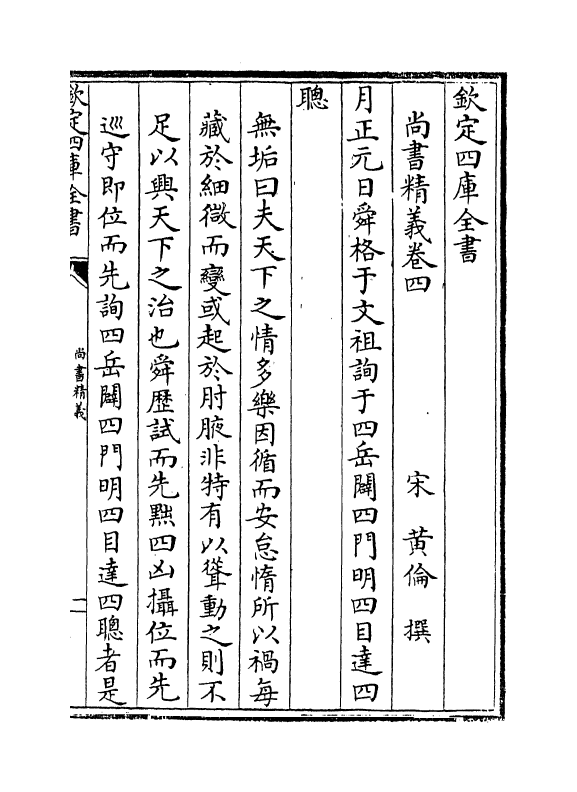 欽定四庫全書
尚書精義卷四
宋 黃倫 撰
月正元日舜格于文祖詢于四岳闢四門明四目達四
聰
無垢曰夫天下之情多樂因循而安怠惰所以禍每
藏於細微而變或起於肘腋非特有以聳動之則不
足以興天下之治也舜歴試而先黜四凶攝位而先
巡守即位而先詢四岳闢四門明四目達四聰者是
欽定四庫全書
尚書精義